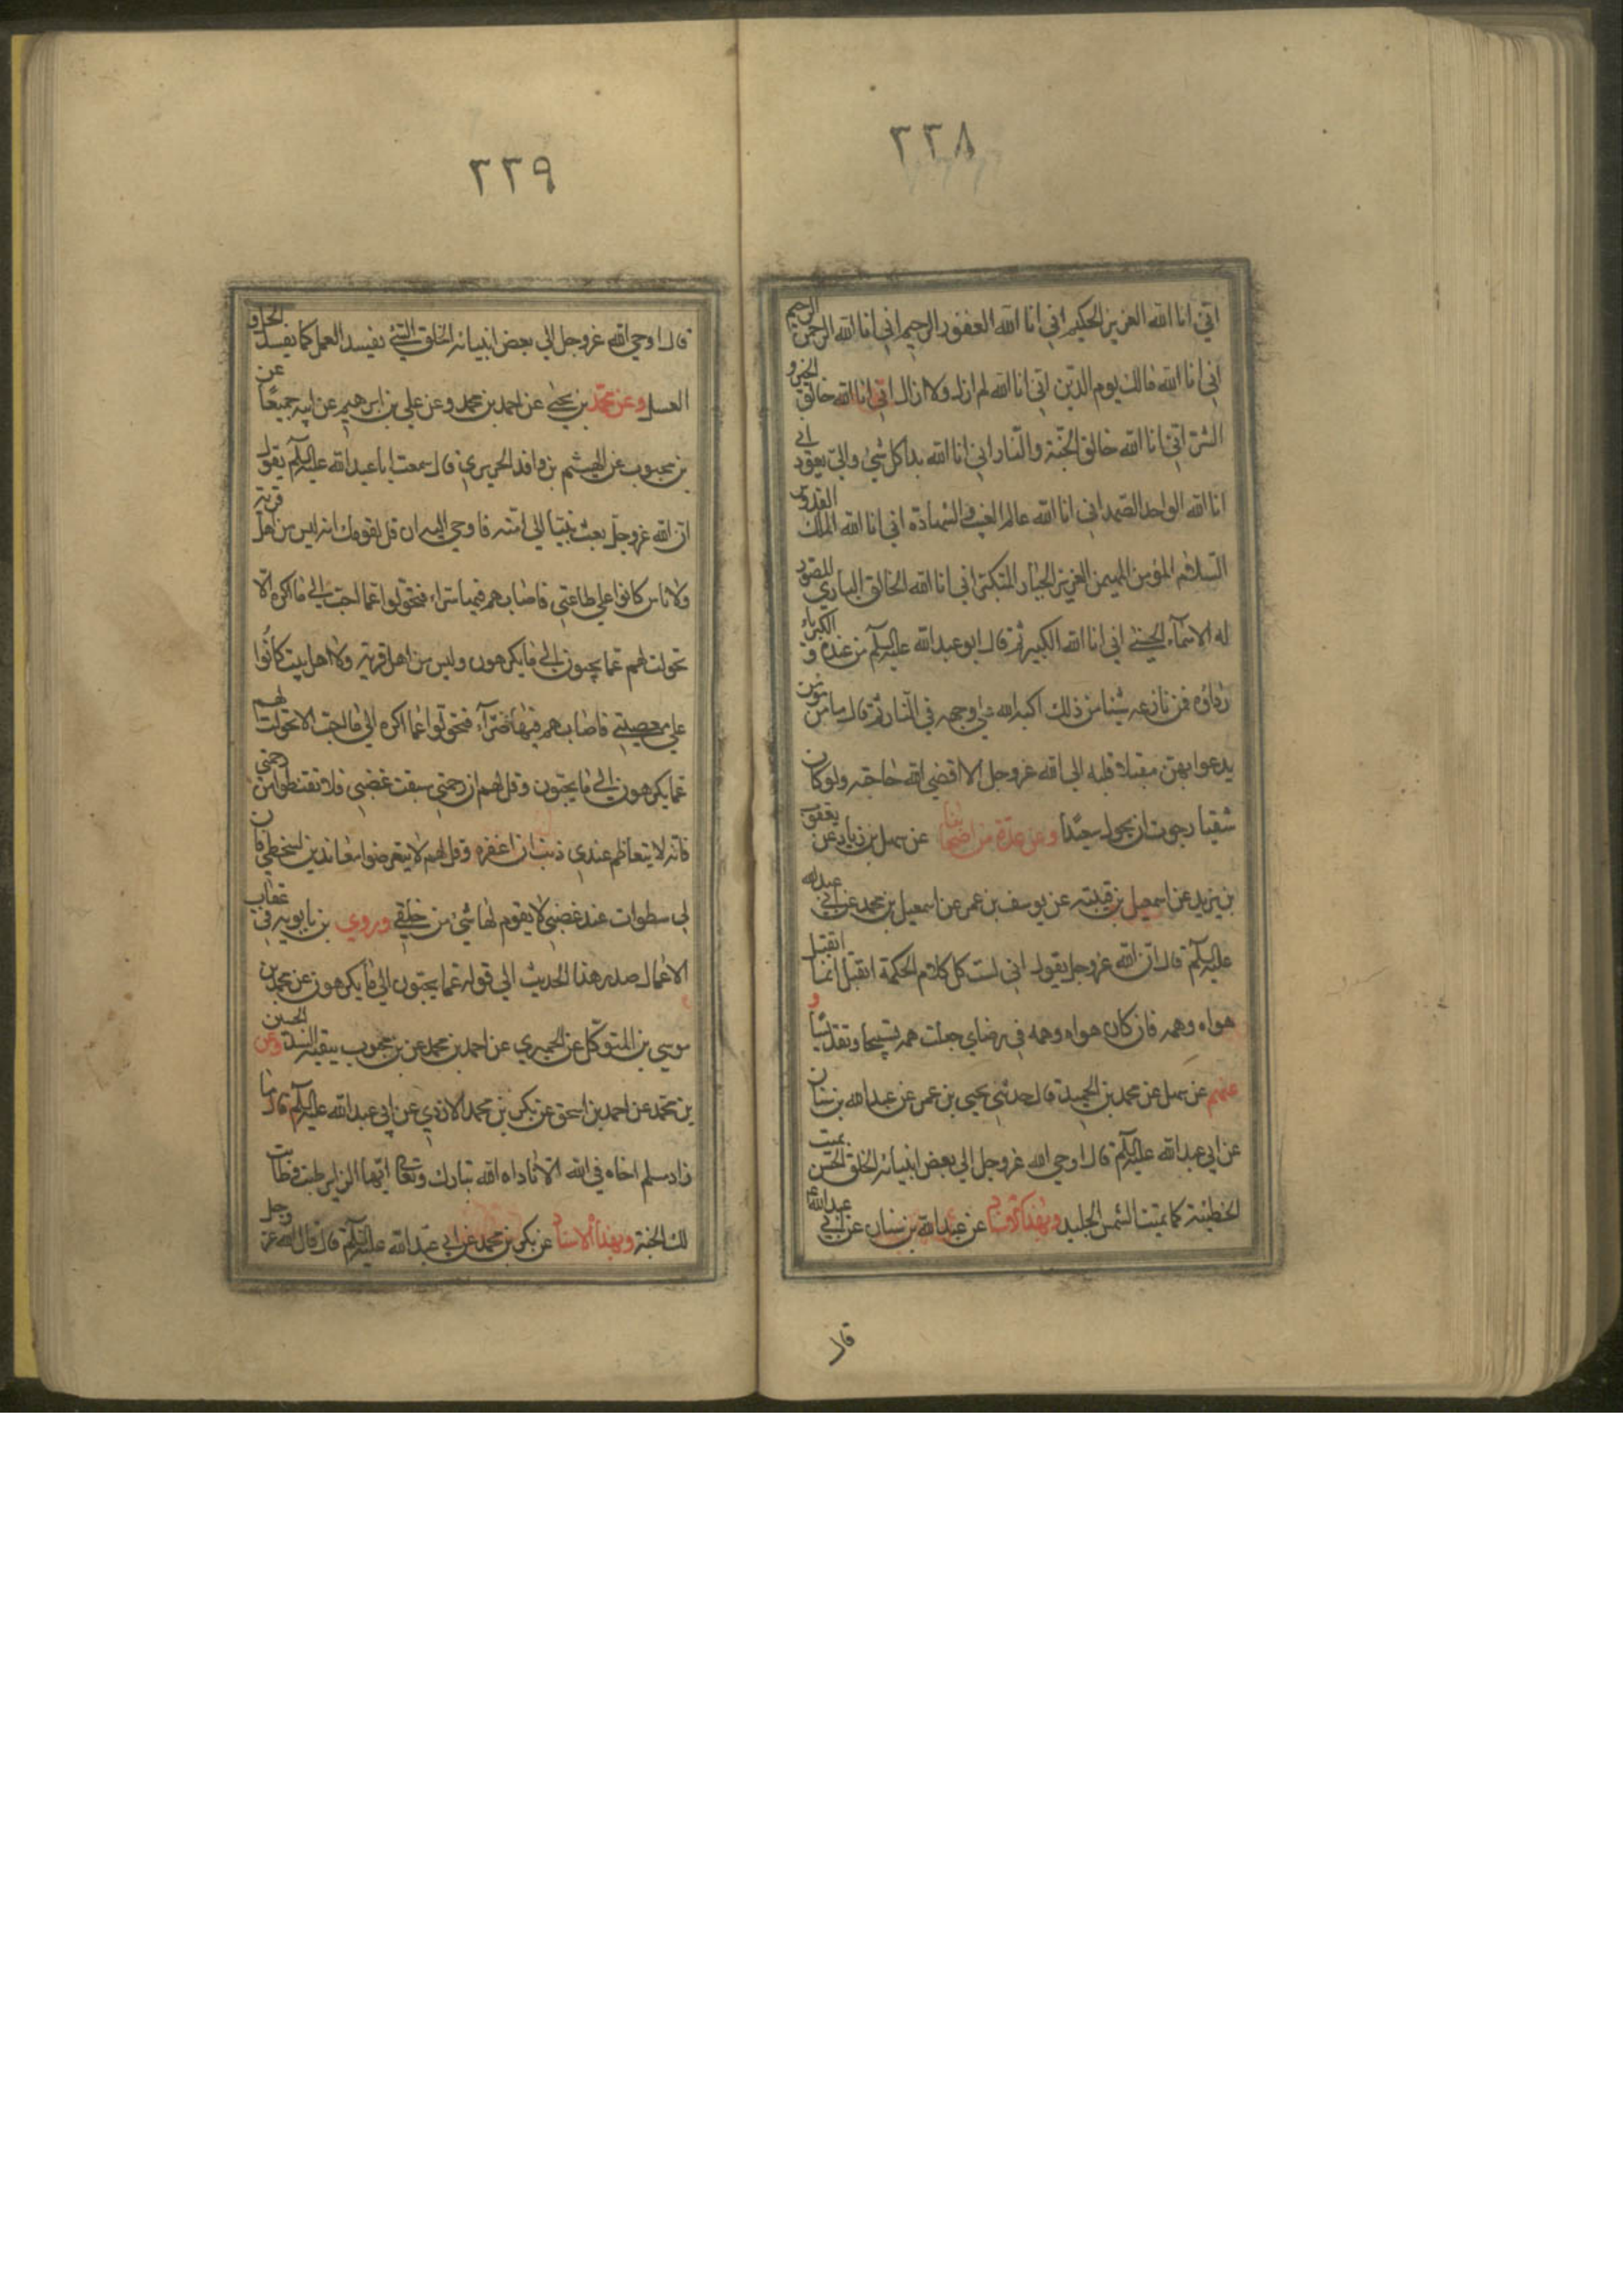 ٢٣٨
اني انا الله العزيز الحكيم اني انا الله الغفور الرحيم اني انا الله الرحمن الرحيم
اني انا الله مالك يوم الدين اني انا الله لم ازل ولا ازال اني انا الله خالق الخير و
الشر اني انا الله خالق الجنة والنار اني انا الله بدا كل شيء والي يعود اني
انا الله الواحد الصمد اني انا الله عالم الغيب والشهادة اني انا الله الملك القدوس
السلام المؤمن المهيمن العزيز الجبار المتكبر اني انا الله الخالق الباري المصور
له الاسماء الحسنى اني انا الله الكبير ثم قال ابو عبد الله عليه السلم من عنده و الكبرياء
رداؤه فمن نازعه شيئا من ذلك اكبه الله على وجهه في النار ثم قال ما من مؤمن
يدعوا بهن مقبلا قلبه الى الله عز وجل الا اقضى الله حاجته ولو كان
شقيا رجوت ان يحول سعيدا وعن عدة من اصحابنا عن سهل بن زياد عن يعقوب
بن يزيد عن اسمعيل بن قتيبة عن يوسف بن عمر عن اسمعيل بن محمد عن ابي عبد الله
عليه السلم قال ان الله عز وجل يقول اني لست كل كلام الحكمة اتقبل انما اتقبل
هواه وهمه فان كان هواه وهمه في رضاي جعلت همه تسبيحا وتقديسا و
عنهم عن سهل عن محمد بن الحميد قال حدثني يحيى بن عمر عن عبد الله بن سنان
عن ابي عبد الله عليه السلم قال اوحى الله عز وجل الى بعض انبيائه الخلق الحسن يميت
الخطيئة كما يميت الشمس الجليد وبهذا الاسناد عن عبد الله بن سنان عن ابي عبد الله ع
قال
٢٣٩
قال اوحى الله عز وجل الى بعض انبيائه الخلق السيئ يفسد العمل كما يفسد الخل
العسل وعن محمد بن يحيى عن احمد بن محمد وعن علي بن ابرهيم عن ابيه جميعا عن
بن محبوب عن الهيثم بن واقد الجريري قال سمعت ابا عبد الله عليه السلم يقول
ان الله عز وجل بعث نبيا الى امته فاوحى اليه ان قل لقومك انه ليس من اهل قرية
ولا ناس كانوا على طاعتي فاصابهم فيها سراء فتحولوا عما احب الى ما اكره الا
تحولت لهم عما يحبون الى ما يكرهون وليس من اهل قرية ولا اهل بيت كانوا
على معصيتي فاصابهم فيها ضراء فتحولوا عما اكره الى ما احب الا تحولت لهم
عما يكرهون الى ما يحبون وقل لهم ان رحمتي سبقت غضبي فلا تقنطوا من رحمتي
فانه لا يتعاظم عندي ذنب ان اغفره وقل لهم لا يتعرضوا معاندين لسخطي فان
لي سطوات عند غضبي لا يقوم لها شيء من خلقي وروى بن بابويه في عقاب
الاعمال صدر هذا الحديث الى قوله عما يحبون الى ما يكرهون عن محمد بن
موسى بن المتوكل عن الحميري عن احمد بن محمد عن بن محبوب ببقية السند وعن الحسين
بن محمد عن احمد بن اسحق عن بكر بن محمد الازدي عن ابي عبد الله عليه السلم قال ما
زار مسلم اخاه في الله الا ناداه الله تبارك وتعالى ايها الزاير طبت وطابت
لك الجنة وبهذا الاسناد عن بكر بن محمد عن ابي عبد الله عليه السلم قال قال الله عز وجل